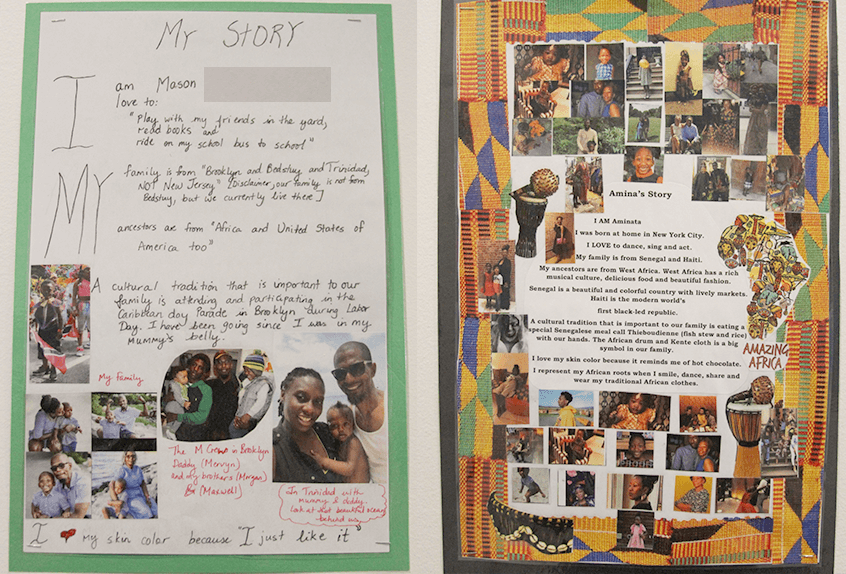 MY STORY
I am Mason
love to:
"play with my friends in the yard,
read books and
ride on my school bus to school"
MY family is from "Brooklyn and Bedstuy and Trinidad,
NOT New Jersey" [Disclaimer, our family is not from
Bedstuy, but we currently live there]
ancestors are from "Africa and United States of
America too"
A cultural tradition that is important to our
family is attending and participating in the
Caribbean day Parade in Brooklyn during Labor
Day. I have been going since I was in my
mummy's belly.
My Family
The M Crew in Brooklyn
Daddy (Mervyn)
and my brothers (Morgan)
(Maxwell)
In Trinidad with
mummy & daddy.
look at that beautiful
behind us
I ❤ my skin color because "I just like it"
Amina's Story
I AM Aminata
I was born at home in New York City.
I LOVE to dance, sing and act.
My family is from Senegal and Haiti.
My ancestors are from West Africa. West Africa has a rich
musical culture, delicious food and beautiful fashion.
Senegal is a beautiful and colorful country with lively markets.
Haiti is the modern world's
first black-led republic.
A cultural tradition that is important to our family is eating a
special Senegalese meal call Thieboudienne (fish stew and rice)
with our hands. The African drum and Kente cloth is a big
symbol in our family.
I love my skin color because it reminds me of hot chocolate.
I represent my African roots when I smile, dance, share and
wear my traditional African clothes.
AMAZING
AFRICA